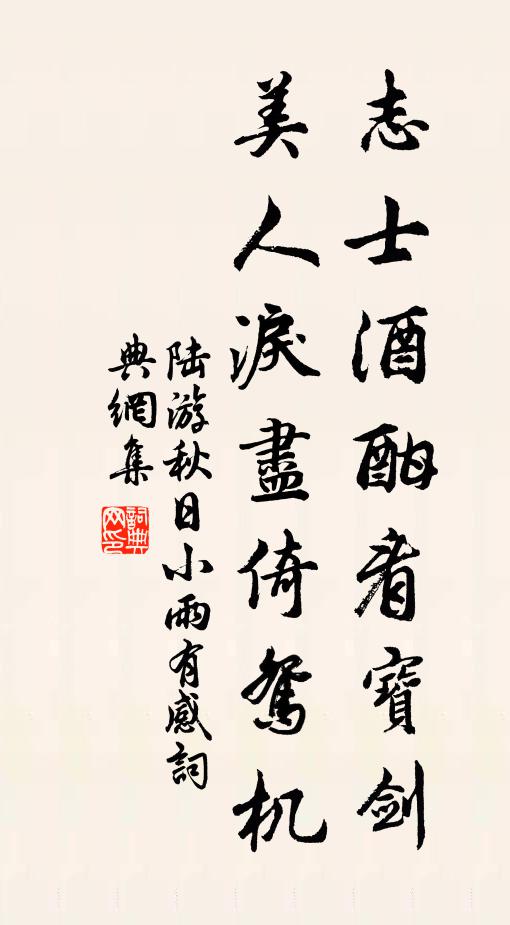 志士酒酣看寶剑
美人淚盡倚鴛机
陆游秋日小雨有感詞
典網集
詞典网印